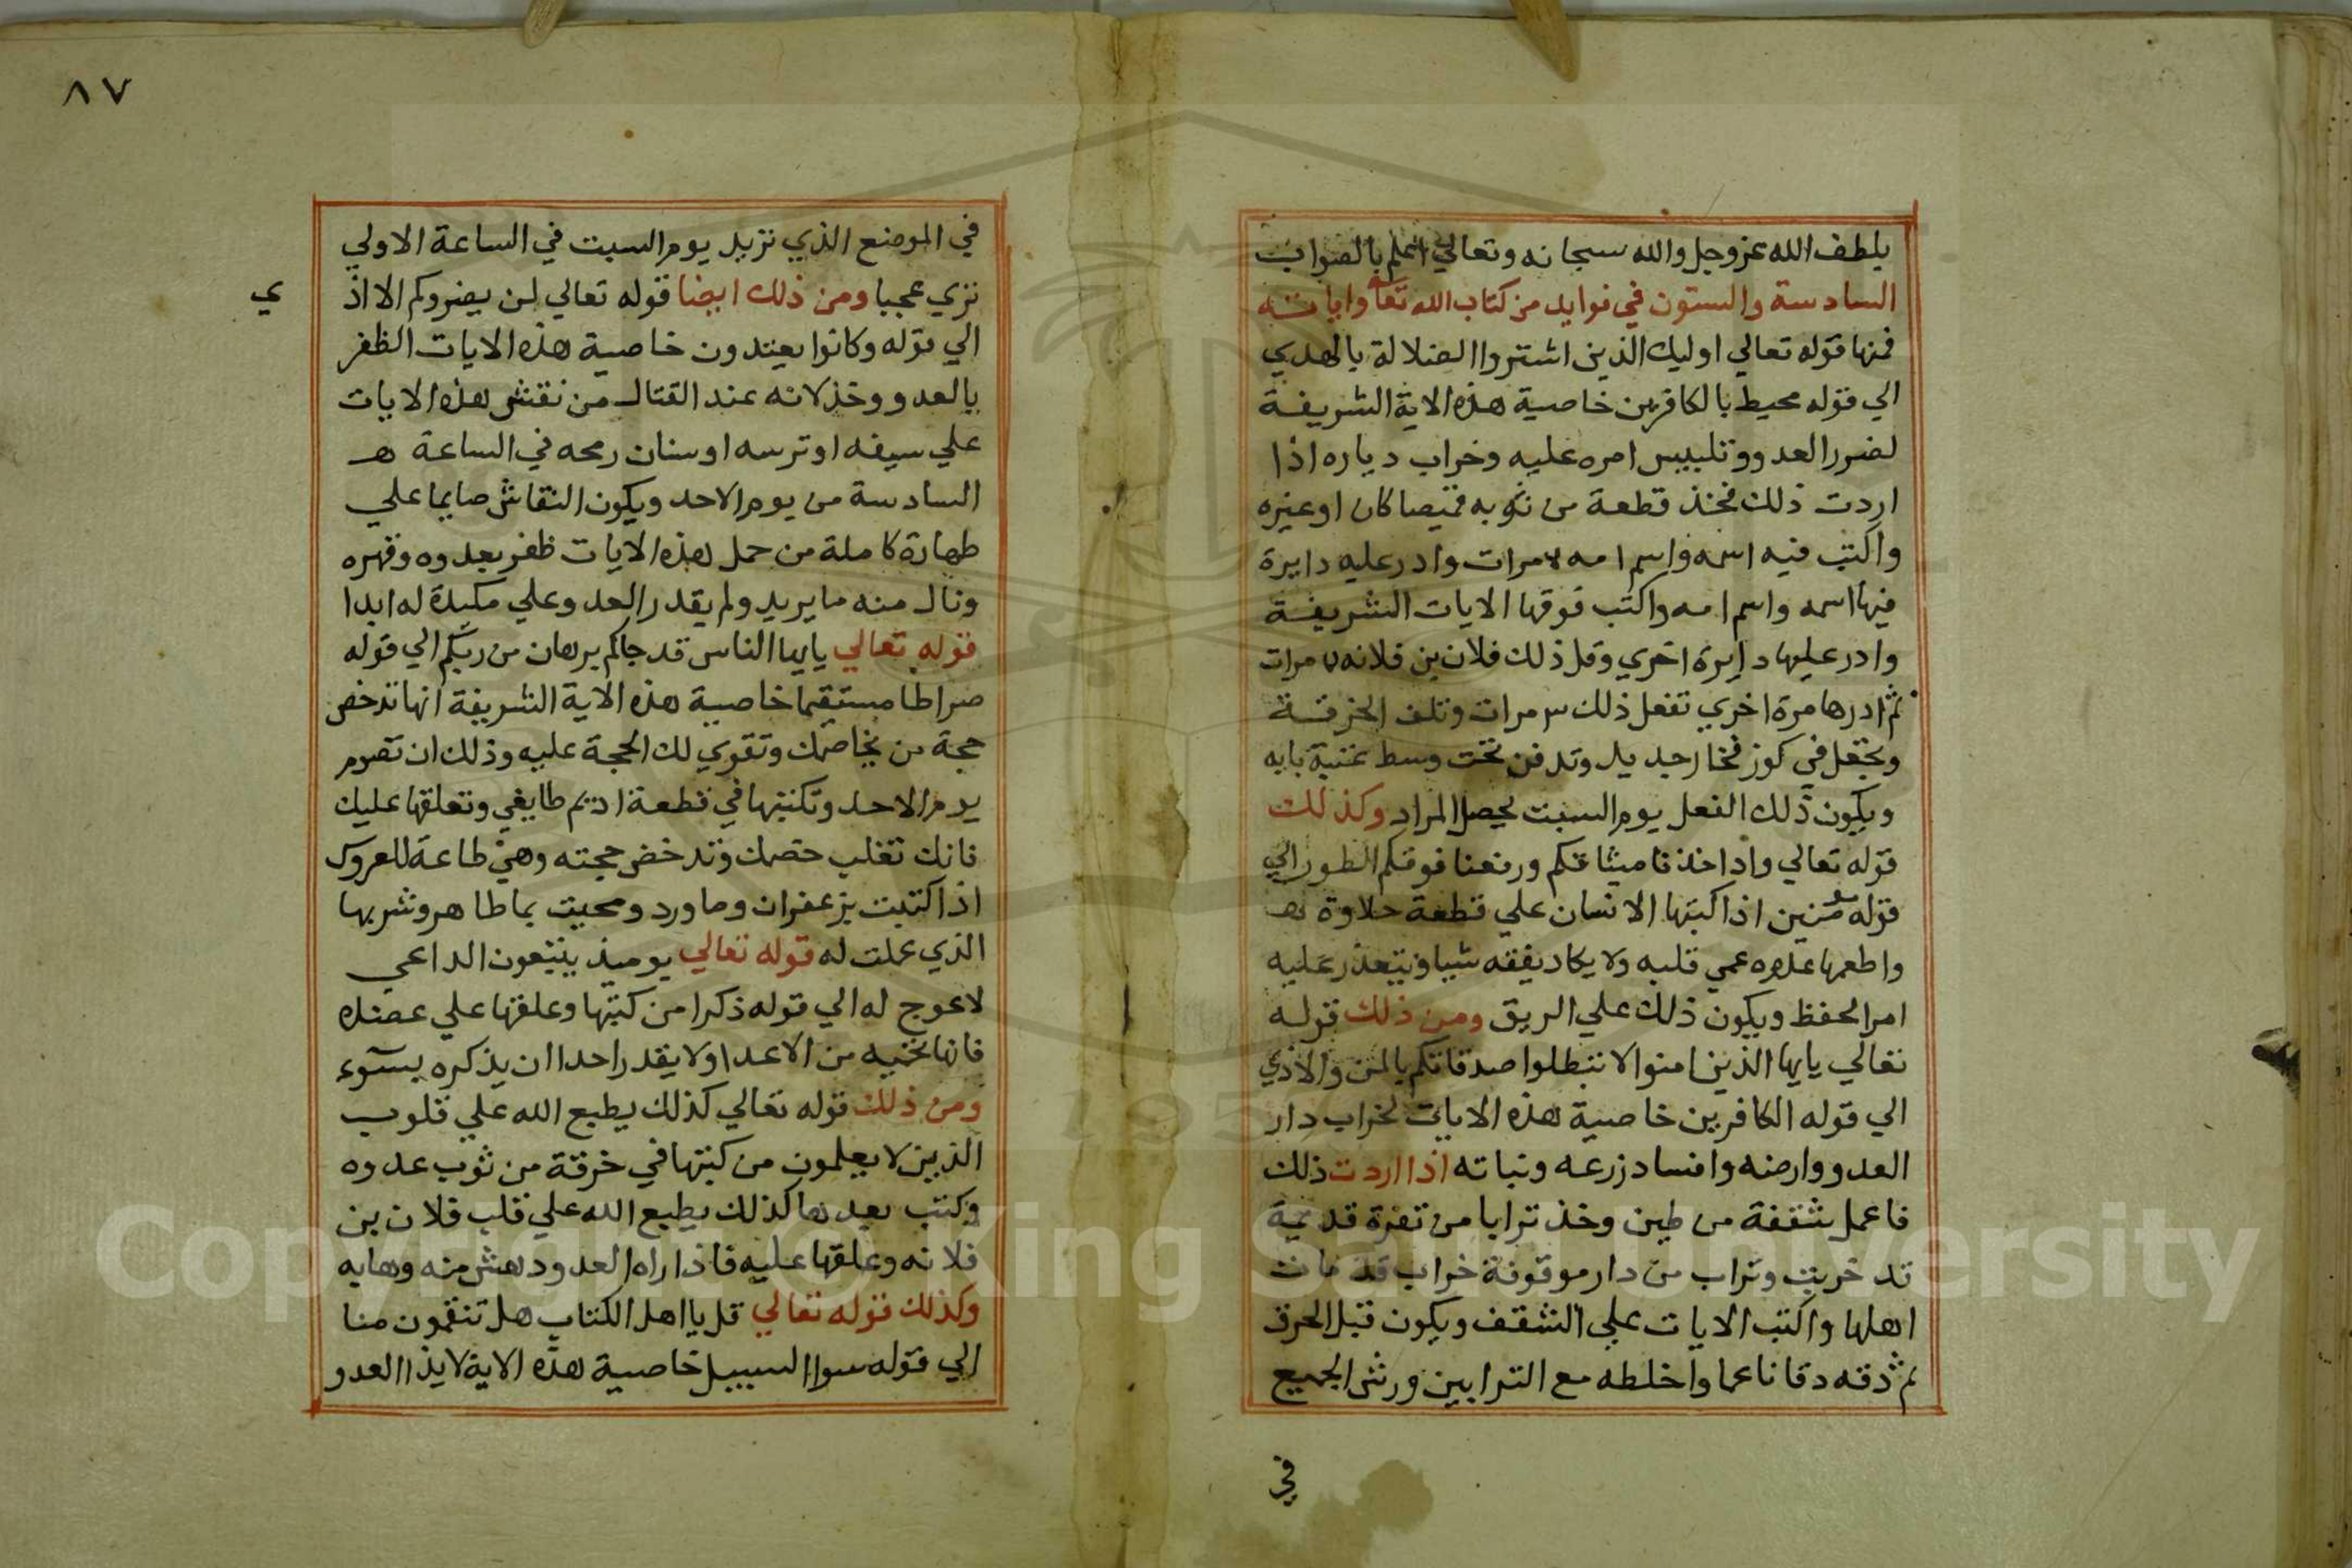 بلطف الله عز وجل والله سبحانه وتعالي اعلم بالصواب
السادسة والستون في فوايد من كتاب الله تعا واياته
فمنها قوله تعالي اوليك الذين اشتروا الضلالة بالهدي
الي قوله محيط بالكافرين خاصية هذه الاية الشريفة
لضرر العدو وتلبيس امره عليه وخراب دياره اذا
اردت ذلك فخذ قطعة من ثوبه قميصا كان او غيره
واكتب فيه اسمه واسم امه ٧ مرات وادر عليه دايرة
فيها اسمه واسم امه واكتب فوقها الايات الشريفة
وادر عليها دايرة اخري وقل ذلك فلان بن فلانه ٧ مرات
ثم ادرها مرة اخري تفعل ذلك ٣ مرات وتلف الخرقة
وتجعل في كوز فخار جديد وتدفن تحت وسط عتبة بابه
ويكون ذلك الفعل يوم السبت يحصل المراد وكذلك
قوله تعالي واذ اخذنا ميثاقكم ورفعنا فوقكم الطور الي
قوله مومنين اذا كتبها الانسان علي قطعة حلاوة
واطعمها عدوه عمي قلبه ولا يكاد يفقه شيا ويتعذر عليه
امر الحفظ ويكون ذلك علي الريق ومن ذلك قوله
تعالي يايها الذين امنوا لا تبطلوا صدقاتكم بالمن والاذي
الي قوله الكافرين خاصية هذه الايات لخراب دار
العدو وارضه وافساد زرعه ونباته اذا اردت ذلك
فاعمل شقفة من طين وخذ ترابا من تفرة قديمة
قد خربت وتراب من دار موقوفة خراب قد مات
اهلها واكتب الايات علي الشقف ويكون قبل الحرق
ثم دقه دقا ناعما واخلطه مع الترابين ورش الجميع
في
٨٧
في الموضع الذي تريد يوم السبت في الساعة الاولي
تري عجبا ومن ذلك ايضا قوله تعالي لن يضروكم الا اذ
ي
الي قوله وكانوا يعتدون خاصية هذه الايات الظفر
بالعدو وخذلانه عند القتال من نقش هذه الايات
علي سيفه او ترسه او سنان رمحه في الساعة هـ
السادسة من يوم الاحد ويكون النقاش صايما علي
طهارة كاملة من حمل هذه الايات ظفر بعدوه وقهره
ونال منه ما يريد ولم يقدر العدو علي مكيدة له ابدا
قوله تعالي يايها الناس قد جاكم برهان من ربكم الي قوله
صراطا مستقيما خاصية هذه الاية الشريفة انها تدخض
حجة من يخاصمك وتقوي لك الحجة عليه وذلك ان تصوم
يوم الاحد وتكتبها في قطعة اديم طايفي وتعلقها عليك
فانك تغلب خصمك وتدخض حجته وهي طاعة للعروس
اذا كتبت بزعفران وماورد ومحيت بما طاهر وشربها
الذي عملت له قوله تعالي يوميذ يتبعون الداعي
لا عوج له الي قوله ذكرا من كتبها وعلقها علي عضده
فانها تحميه من الاعدا ولا يقدر احدا ان يذكره بسوء
ومن ذلك قوله تعالي كذلك يطبع الله علي قلوب
الذين لا يعلمون من كتبها في خرقة من ثوب عدوه
وكتب بعدها كذلك يطبع الله علي قلب فلان بن
فلانه وعلقها عليه فاذا راه العدو دهش منه وهابه
وكذلك قوله تعالي قل يا اهل الكتاب هل تنقمون منا
الي قوله سوا السبيل خاصية هذه الاية لايذا العدو
Copyright © King Saud University